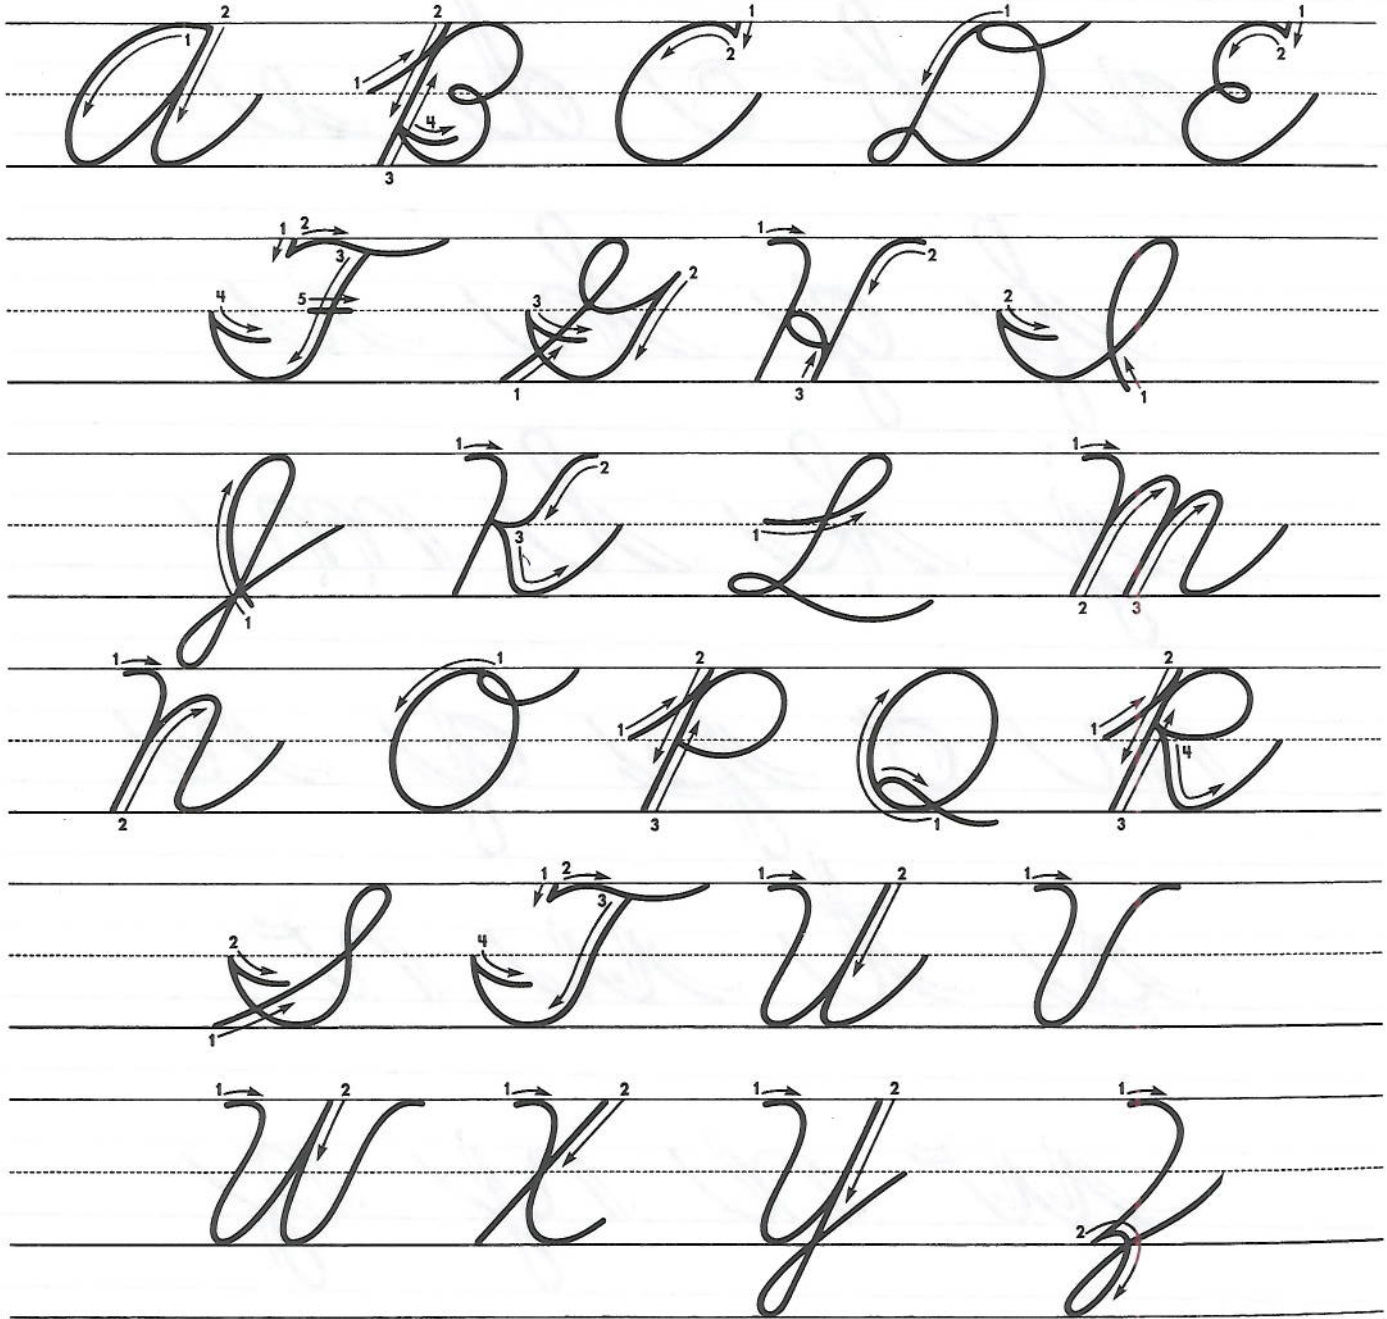 A B C D E
F G H I
J K L M
N O P Q R
S T U V
W X Y Z